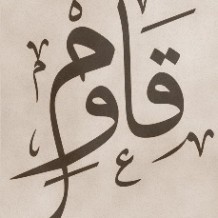 قاوم